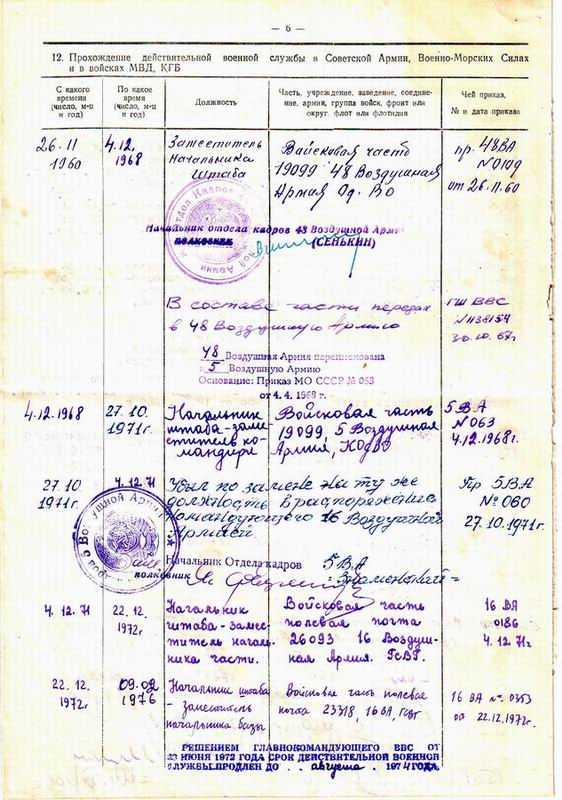 — 6 —
12. Прохождение действительной военной службы в Советской Армии, Военно-Морских Силах
и в войсках МВД, КГБ
С какого
времени
(число, м-ц
и год)
По какое
время
(число, м-ц
и год)
Должность
Часть, учреждение, заведение, соедине-
ние, армия, группа войск, фронт или
округ, флот или флотилия
Чей приказ,
№ и дата приказа
26.11
1960
4.12.
1968
Заместитель
Начальника
Штаба
Войсковая часть
19099 48 Воздушная
Армия Од. ВО
пр. 48ВА
от 26.11.60
Начальник отдела кадров 48 Воздушной Армии
полковник
(СЕНЬКИН)
В составе части передан
в 48 Воздушную Армию
ГШ ВВС
30.10.67г
48 Воздушная Армия переименована
в 5 Воздушную Армию
Основание: Приказ МО СССР № 063
от 4.4.1968 г.
4.12.1968
27.10.
1971г.
Начальник
штаба-заме-
ститель ко-
мандира
Войсковая часть
19099, 5 Воздушная
Армия, КОдВО
5 ВА
N 063
4.12.1968г.
27.10
1971г.
4.12.71
Убыл по замене на ту же
должность в распоряжение
Командующего 16 Воздушной
Армией
Пр 5ВА
№ 060
27.10.1971г.
5 Воздушной Армии
Начальник Отдела кадров 5 ВА
полковник
=Знаменский=
4.12.71
22.12.
1972г
Начальник
штаба-замес-
титель началь-
ника части.
Войсковая часть
полевая почта
26093 16 Воздуш-
ная Армия. ГСВГ.
16 ВА
0186
4.12.71г
22.12.
1972г.
09.02
1976
Начальник штаба
- заместитель
начальника базы
Войсковая часть полевая
почта 23318, 16 ВА, ГСВГ
16 ВА № 0353
от 22.12.1972г.
РЕШЕНИЕМ ГЛАВНОКОМАНДУЮЩЕГО ВВС ОТ
23 ИЮНЯ 1972 ГОДА СРОК ДЕЙСТВИТЕЛЬНОЙ ВОЕННОЙ
СЛУЖБЫ ПРОДЛЕН ДО . . августа . 1974 ГОДА.